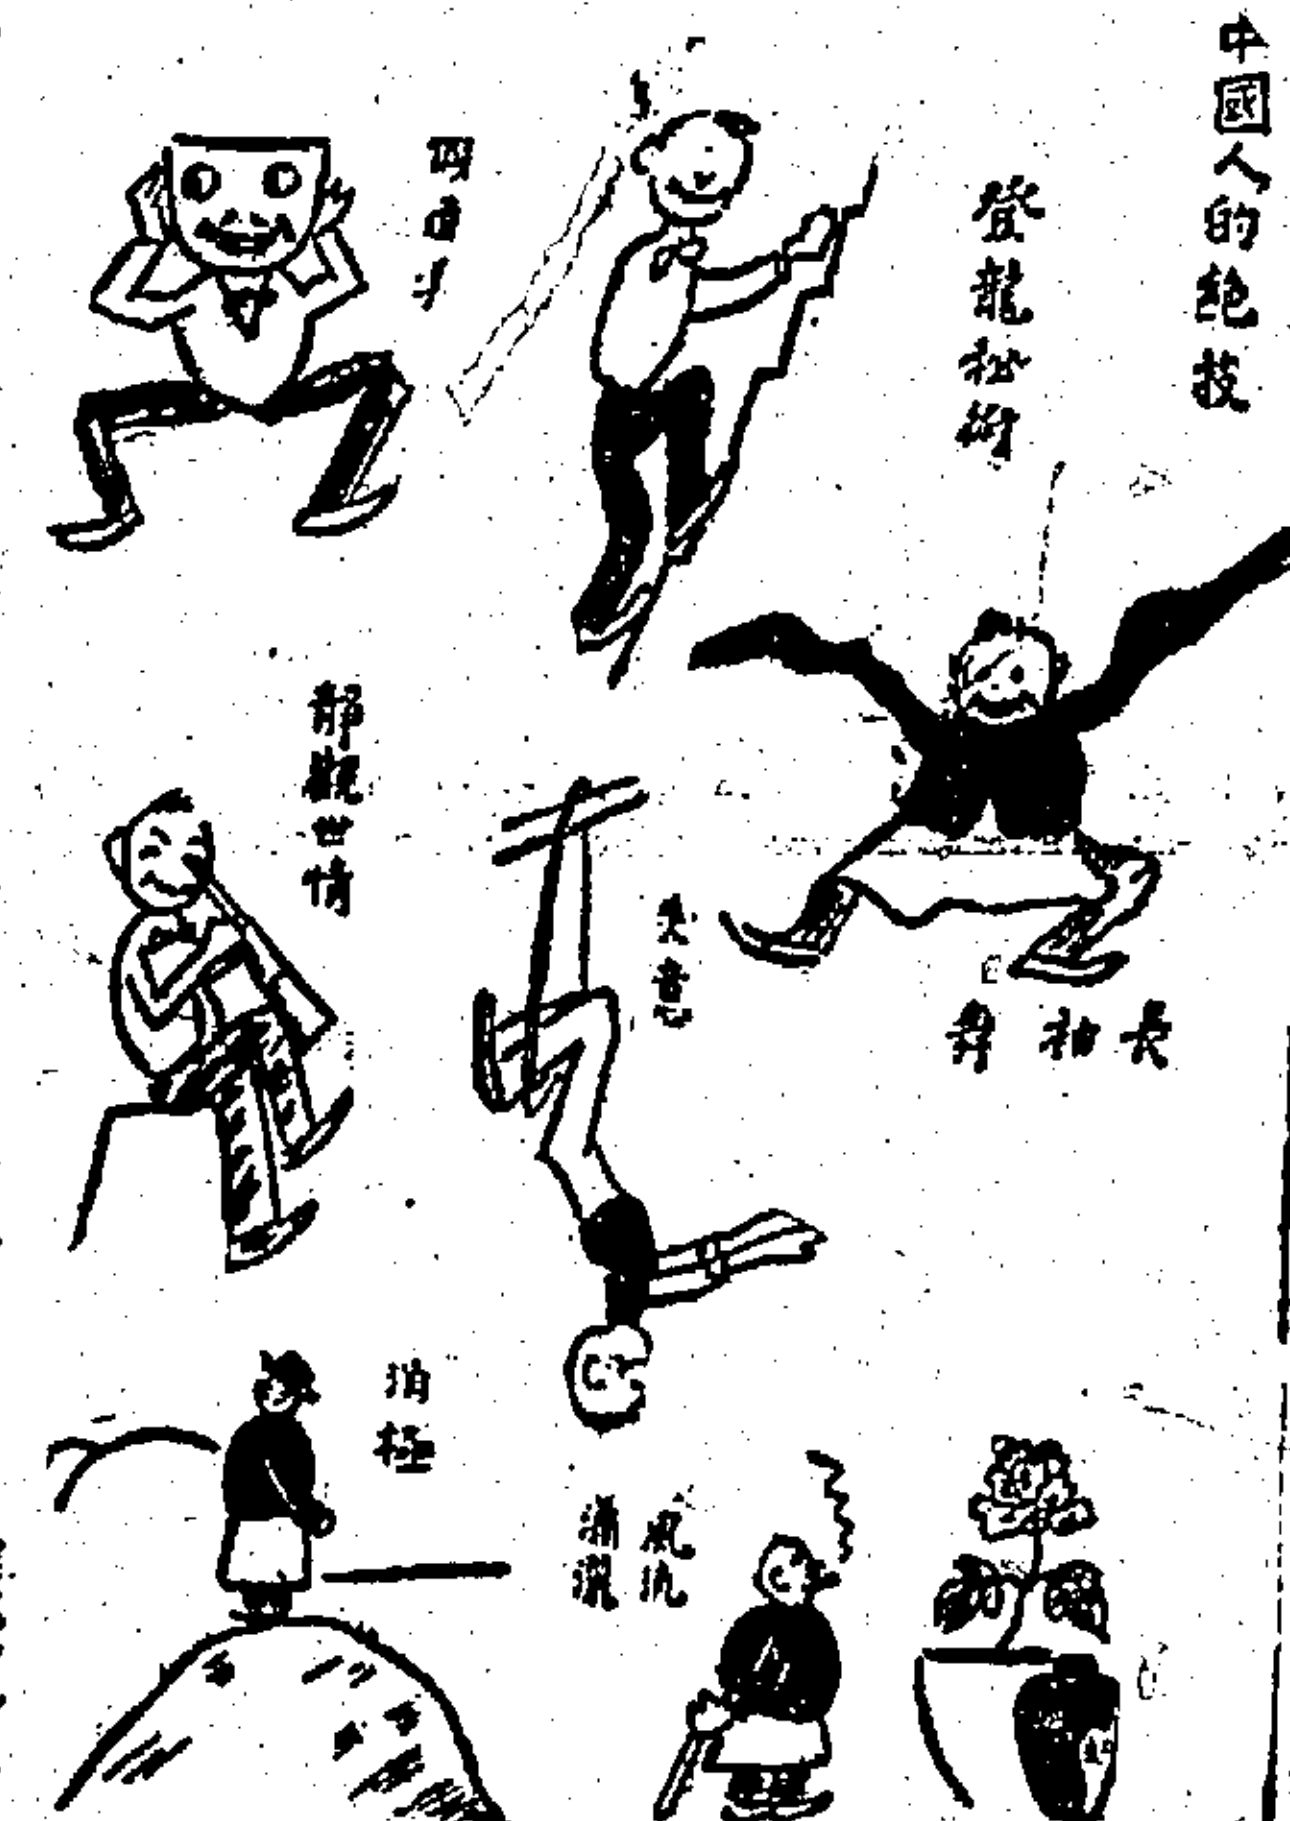 中國人的絕技
登龍秘術
四由斗
長袖舞
靜觀世情
失意
消極
風流
瀟灑